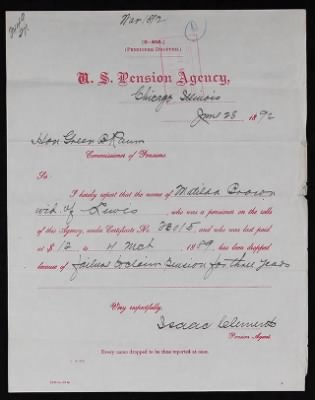 Mar 1812
(PENSIONER DROPPED.)
U. S. Pension Agency,
Chicago Illinois
June 25 1892
Hon Green B Raum
Commissioner of Pensions.
Sir:
I hereby report that the name of Matilda Brown
wid. of Lewis who was a pensioner on the rolls
of this Agency, under Certificate No. and who was last paid
at $ 12 to 4 Mch 1889, has been dropped
because of failure to claim Pension for three years
Very respectfully,
Isaac Clements
Pension Agent.
Every name dropped to be thus reported at once.